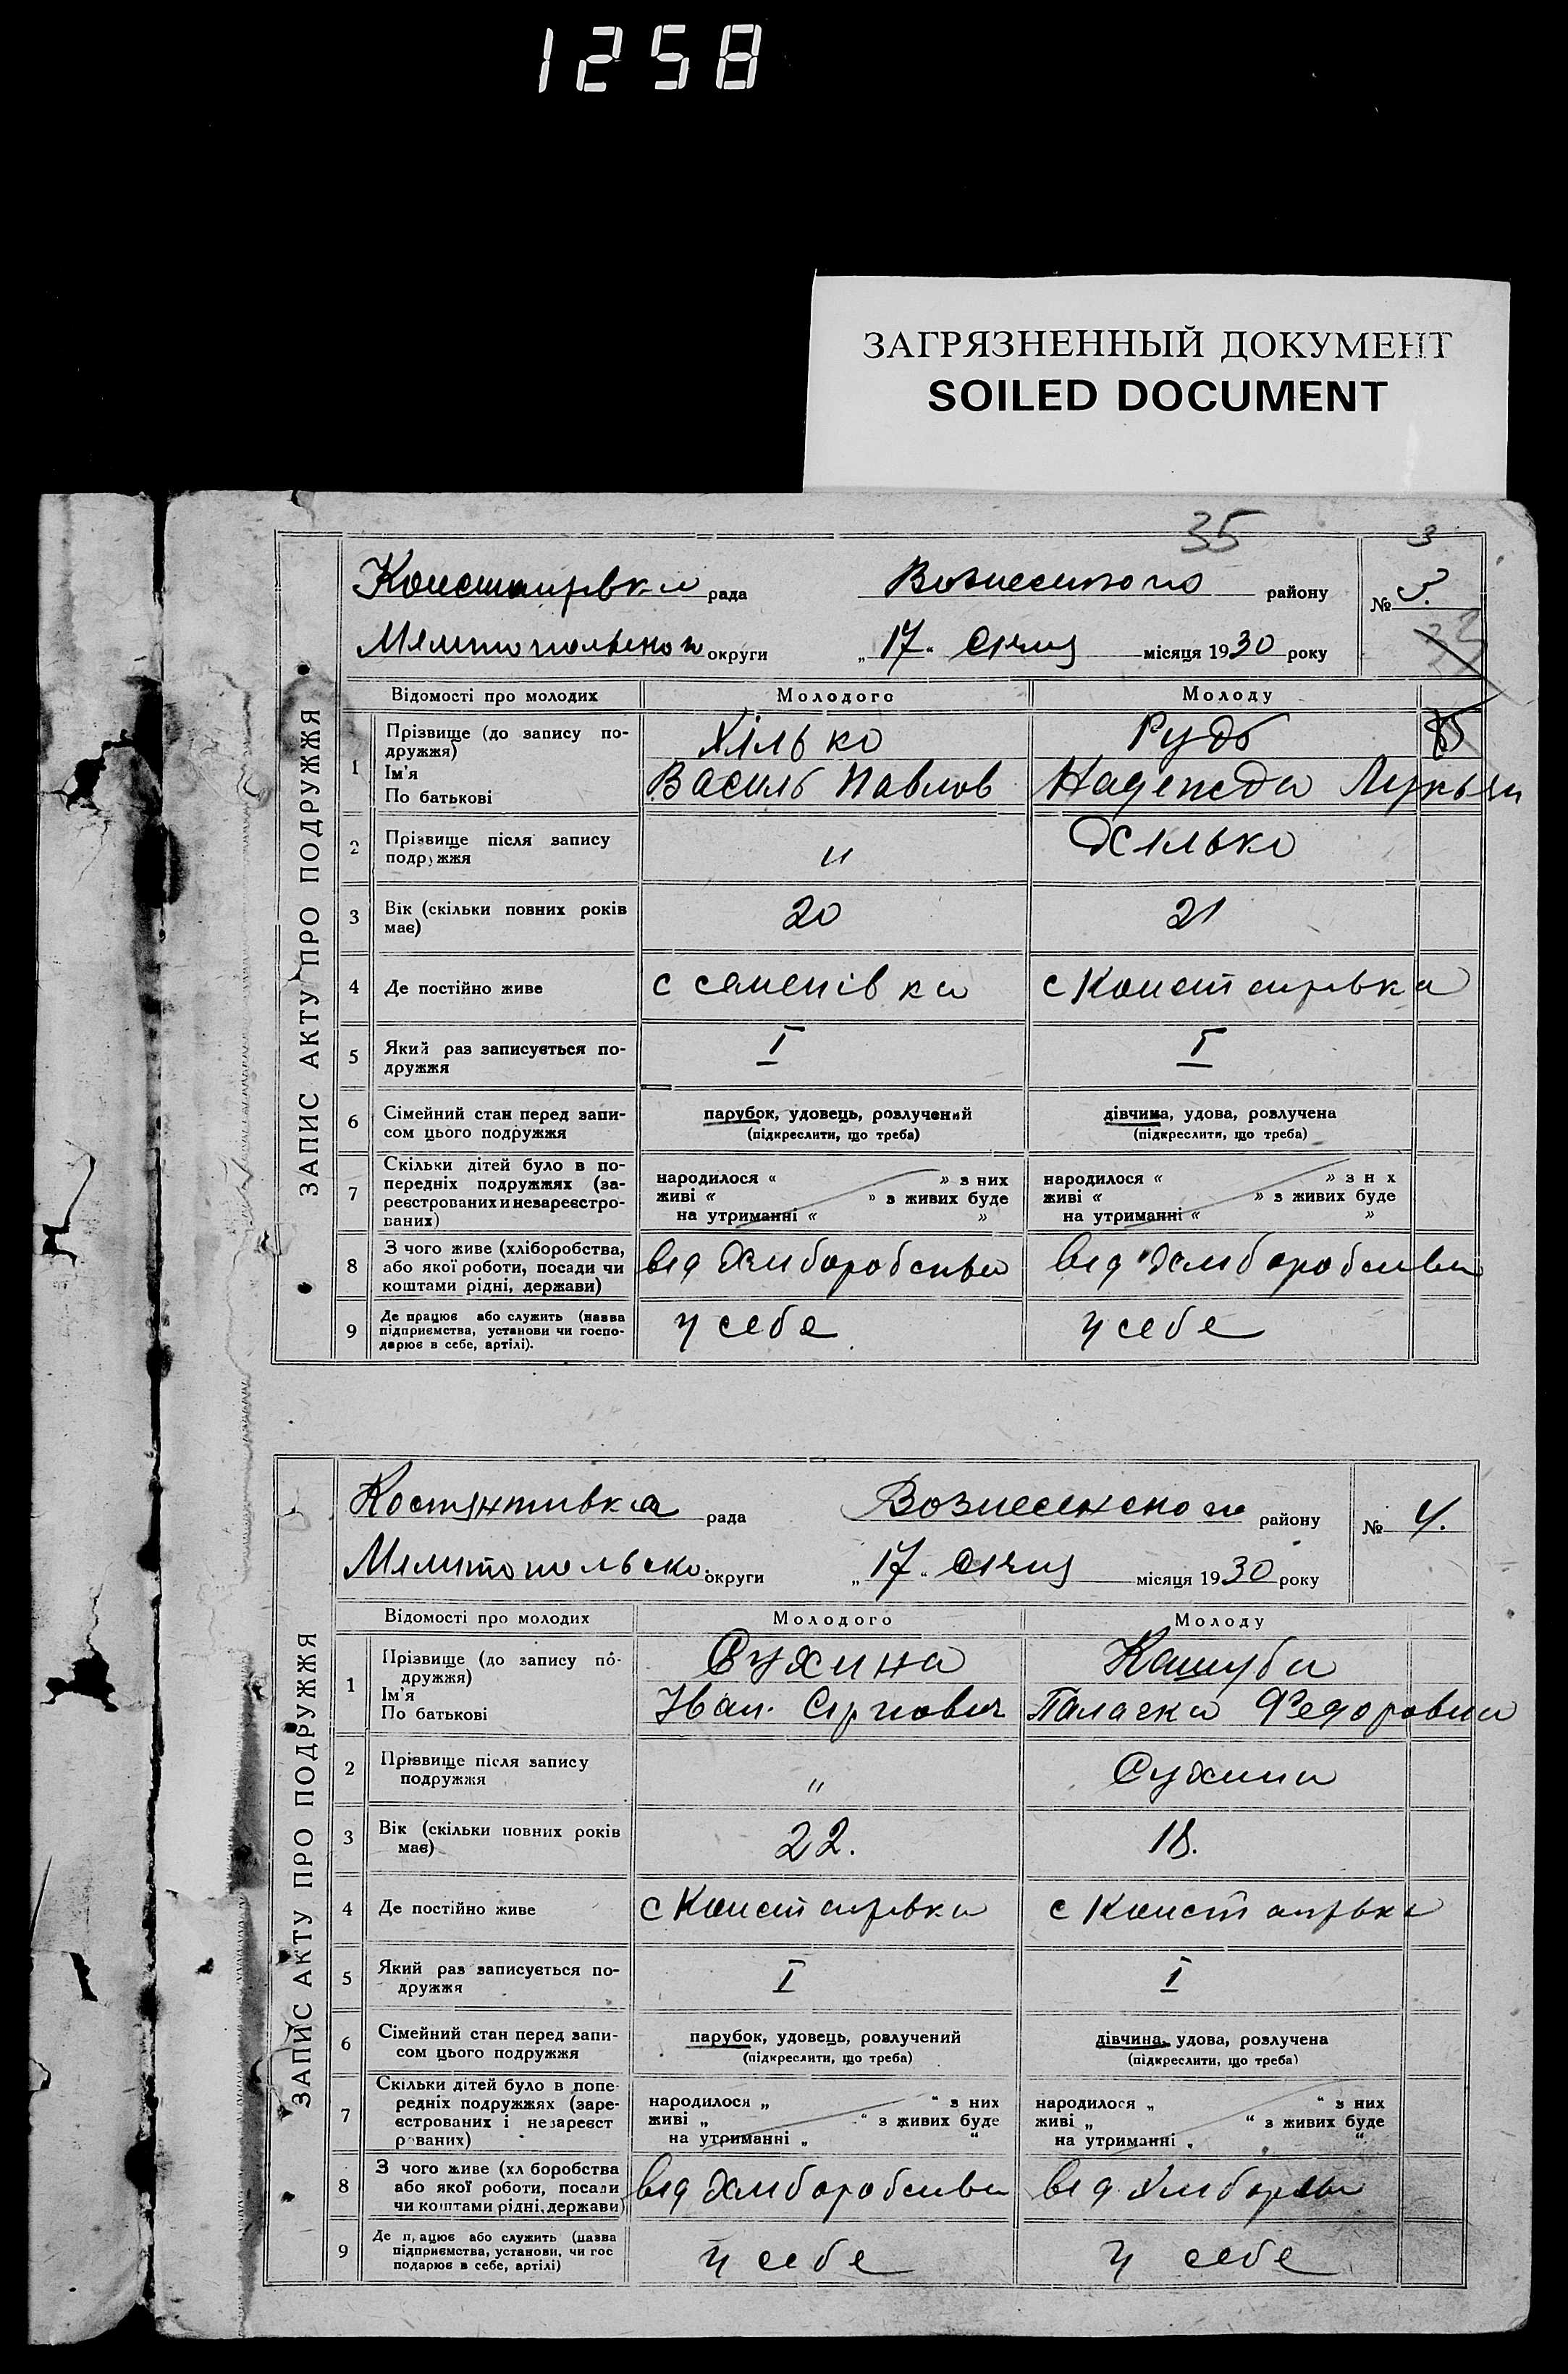 1258
ЗАГРЯЗНЕННЫЙ ДОКУМЕНТ
SOILED DOCUMENT
35
3
ЗАПИС АКТУ ПРО ПОДРУЖЖЯ
рада Вознесенского району № 3.
округи „17“ Січня місяця 1930 року
Відомості про молодих Молодого Молоду
1 Прізвище (до запису подружжя) Хілько Рудь
Ім'я
По батькові Василь Павлов Надежда Лукьян
2 Прізвище після запису подружжя " Хілько
3 Вік (скільки повних років має) 20 21
4 Де постійно живе с Семенівка с Константировка
5 Який раз записується подружжя I I
6 Сімейний стан перед записом цього подружжя парубок, удовець, розлучений дівчина, удова, розлучена
(підкреслити, що треба) (підкреслити, що треба)
7 Скільки дітей було в попередніх подружжях (зареєстрованих и незареєстрованих) народилося « » з них народилося « » з н х
живі « » з живих буде живі « » з живих буде
на утриманні « » на утриманні « »
8 З чого живе (хліборобства, або якої роботи, посади чи коштами рідні, держави) від хліборобства від хліборобства
9 Де працює або служить (назва підприємства, установи чи господарює в себе, артілі). у себе у себе
ЗАПИС АКТУ ПРО ПОДРУЖЖЯ
Костянтивка рада Вознесенского району № 4.
Мелитопольско. округи „17“ Січня місяця 1930 року
Відомості про молодих Молодого Молоду
1 Прізвище (до запису подружжя) Сухина Кашуба
Ім'я
По батькові Іван Паласка Федоровна
2 Прізвище після запису подружжя " Сухина
3 Вік (скільки повних років має) 22. 18.
4 Де постійно живе с с
5 Який раз записується подружжя I I
6 Сімейний стан перед записом цього подружжя парубок, удовець, розлучений дівчина, удова, розлучена
(підкреслити, що треба) (підкреслити, що треба)
7 Скільки дітей було в попередніх подружжях (зареєстрованих і незареєст р ваних) народилося „ “ з них народилося „ “ з них
живі „ “ з живих буде живі „ “ з живих буде
на утриманні „ “ на утриманні „ “
8 З чого живе (хл боробства або якої роботи, посади чи коштами рідні, держави) від хліборобства від
9 Де працює або служить (назва підприємства, установи, чи гос подарює в себе, артілі) у себе у себе